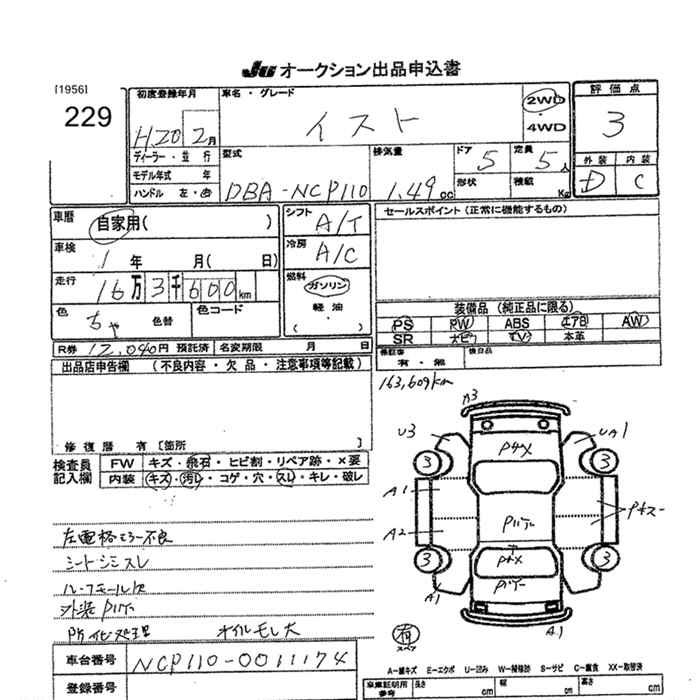 JU オークション出品申込書
[1956]
229
初度登録年月
H20 2月
車名・グレード
イスト
2WD
・
4WD
評価点
3
外装 内装
D C
ディーラー・並行
モデル年式 年
ハンドル 左・右
型式
DBA-NCP110
排気量
1.49cc
ドア
5
定員
5人
形状
積載
Kg
車歴
自家用( )
車検
1年 月( 日)
走行
16万3千600km
色
ちゃ 色替
色コード
シフト
A/T
冷房
A/C
燃料
ガソリン
軽油
( )
セールスポイント(正常に機能するもの)
装備品(純正品に限る)
PS PW ABS エアB AW
SR ナビ TV 本革
保証書
有・無
後日品
R券 12,040円 預託済 名変期限 月 日
出品店申告欄 (不良内容・欠品・注意事項等記載)
修復歴 有〔箇所 〕
検査員
記入欄
FW キズ・飛石・ヒビ割・リペア跡・×要
内装 キズ・汚れ・コゲ・穴・スレ・キレ・破レ
163,609km
A3
U3
UA1
PキズX
3
3
A1
A2
Pハゲー
Pキズー
PキズX
Pハゲー
3
3
A1
A1
有
スペア
左電格ミラー不良
シートシミスレ
ルーフモール欠
外装Pハゲー
オイルモレ大
車台番号 NCP110-0011174
登録番号
A-線キズ E-エクボ U-凹み W-補修跡 S-サビ C-腐食 XX-取替済
車庫証明用
参考
長さ cm
幅 cm
高さ cm